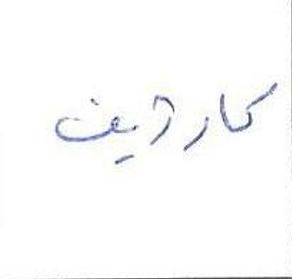 کاردیف